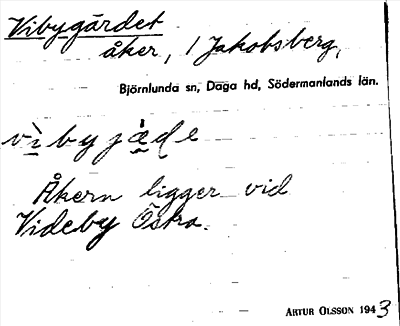 Vibygärdet
åker, 1 Jakobsberg,
Björnlunda sn, Daga hd, Södermanlands län.
Åkern ligger vid
Videby Östra.
ARTUR OLSSON 1943